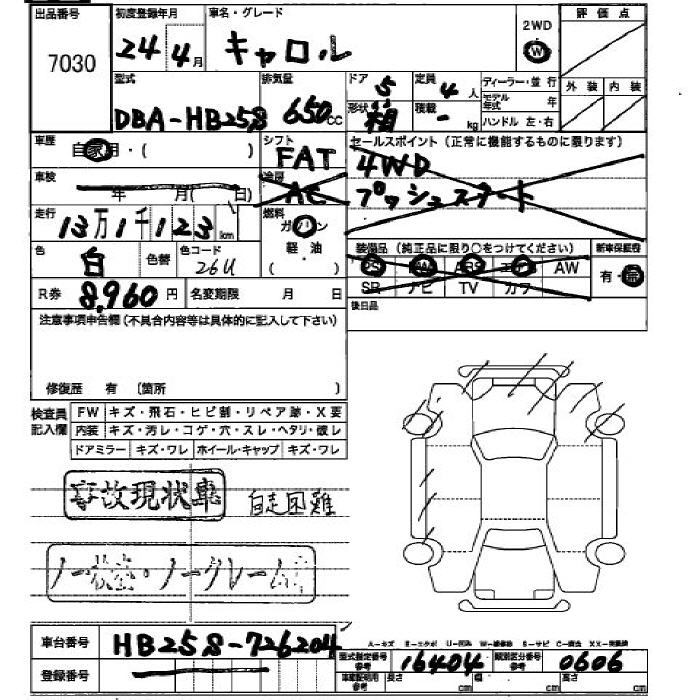 出品番号
7030
初度登録年月
24年4月
車名・グレード
キャロル
2WD
W
評価点
型式
DBA-HB25S
排気量
650cc
ドア 5
定員 4人
形状 箱
積載 - kg
ディーラー・並行
モデル年式 年
ハンドル 左・右
外装 内装
車歴
自家用・( )
シフト
FAT
セールスポイント(正常に機能するものに限ります)
4WD
プッシュスタート
車検
年 月( 日)
冷房
AC
走行
13万1千123km
燃料
ガソリン
軽・油
( )
色
白
色替
色コード
26U
装備品(純正品に限り○をつけてください)
PS PW ABS エアB AW
SR ナビ TV カワ
新車保証書
有・無
R券 8,960円
名変期限 月 日
後日品
注意事項申告欄(不具合内容等は具体的に記入して下さい)
修復歴 有 〔箇所 〕
検査員記入欄
FW キズ・飛石・ヒビ割・リペア跡・X要
内装 キズ・汚レ・コゲ・穴・スレ・ヘタリ・破レ
ドアミラー キズ・ワレ ホイール・キャップ キズ・ワレ
事故現状車
自走困難
ノー検査・ノークレーム
A-キズ E-エクボ U-凹み W-補修跡 S-サビ C-腐食 XX-交換済
車台番号
HB25S-726204
型式指定番号
参考
16404
類別区分番号
参考
0606
登録番号
車庫証明用
参考
長さ cm 幅 cm 高さ cm